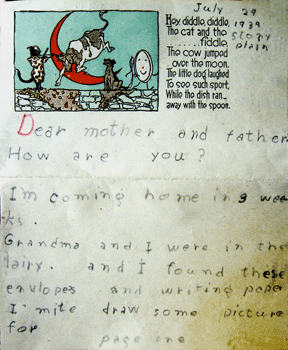 July 29
1939
stony
plain
Hey diddle, diddle,
The cat and the
......fiddle,
The cow jumped
..over the moon.
The little dog laughed
To see such sport,
While the dish ran...
away with the spoon.
Dear mother and father
How are you?
I'm coming home in 3 wee
ks.
Grandma and I were in the
dairy. and I found these
envlopes and writing paper
I mite draw some picture
for
page one